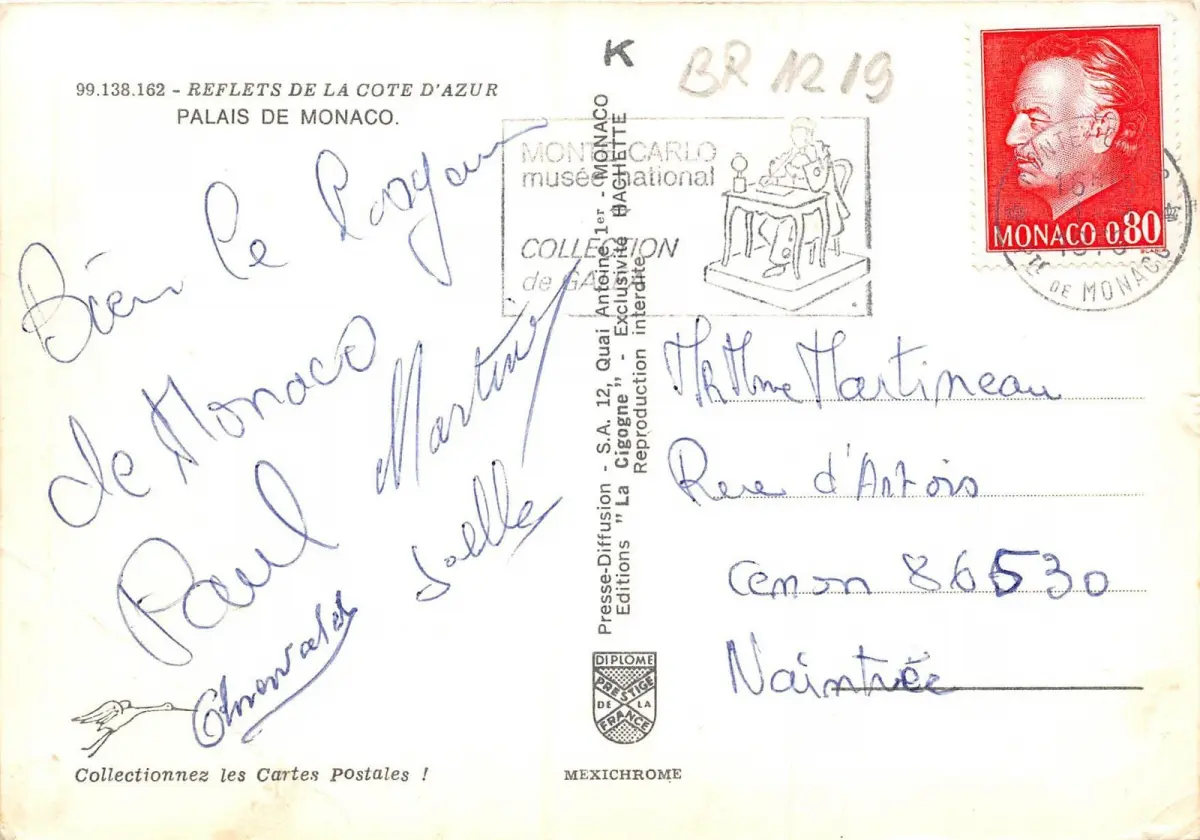 99.138.162 - REFLETS DE LA COTE D'AZUR
PALAIS DE MONACO.
Bien le
de Monaco
Paul Martine
Joelle
Collectionnez les Cartes Postales !
K
BR 1219
MONTE-CARLO
musée national
COLLECTION
de
Presse-Diffusion - S.A. 12, Quai Antoine 1er - MONACO
Editions "La Cigogne" - Exclusivité HACHETTE
Reproduction interdite
DIPLOME
PRESTIGE
DE LA
FRANCE
MEXICHROME
MONACO 0.80
Pté DE MONACO
Mr Mme Martineau
Rue d'Artois
Cenon 86530
Naintrée